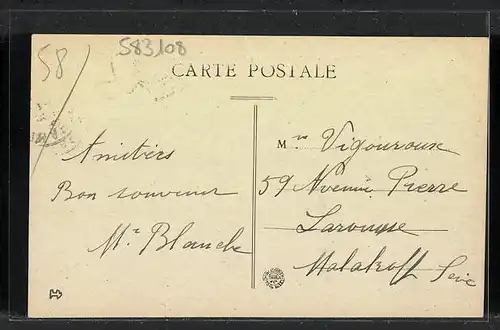 58
583108
CARTE POSTALE
Amitiés
Bon souvenir
Me Blanche
Mme Vigouroux
59 Avenue Pierre
Larousse
Malakoff Seine